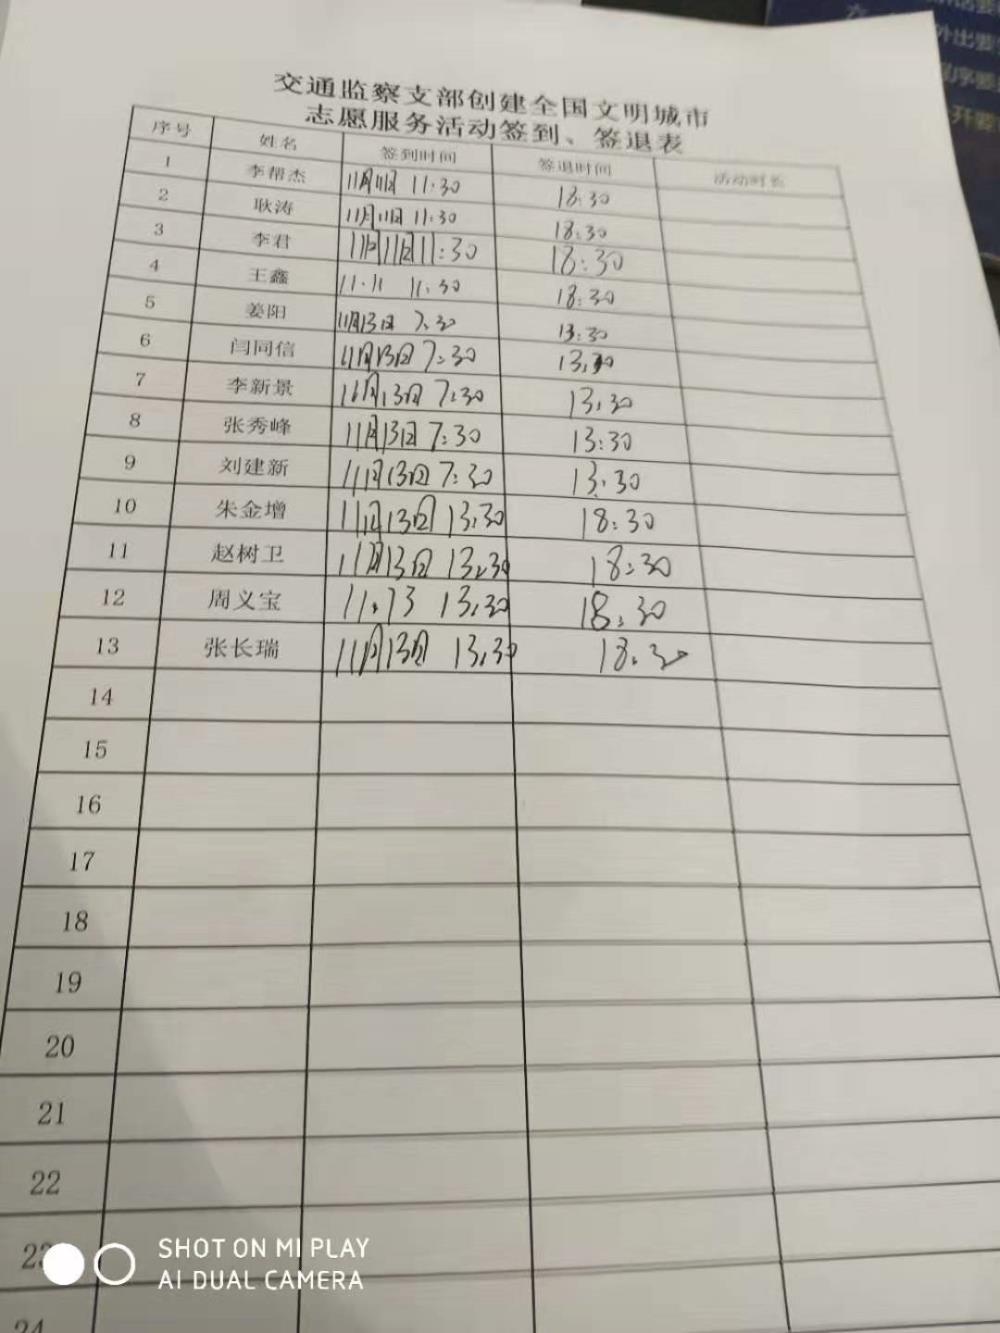 交通监察支部创建全国文明城市
志愿服务活动签到、签退表
序号 姓名 签到时间 签退时间 活动时长
1 李帮杰 11月11日 11:30 18:30
2 耿涛 11月11日 11:30 18:30
3 李君 11月11日11:30 18:30
4 王鑫 11.11 11.30 18:30
5 姜阳 11月13日 7:30 13:30
6 闫同信 11月13日 7:30 13.30
7 李新景 11月13日 7:30 13:30
8 张秀峰 11月13日 7:30 13:30
9 刘建新 11月13日 7:30 13.30
10 朱金增 11月13日 13.30 18:30
11 赵树卫 11月13日 13.30 18:30
12 周义宝 11.13 13.30 18.30
13 张长瑞 11月13日 13.30 18.30
14
15
16
17
18
19
20
21
22
23
24
SHOT ON MI PLAY
AI DUAL CAMERA